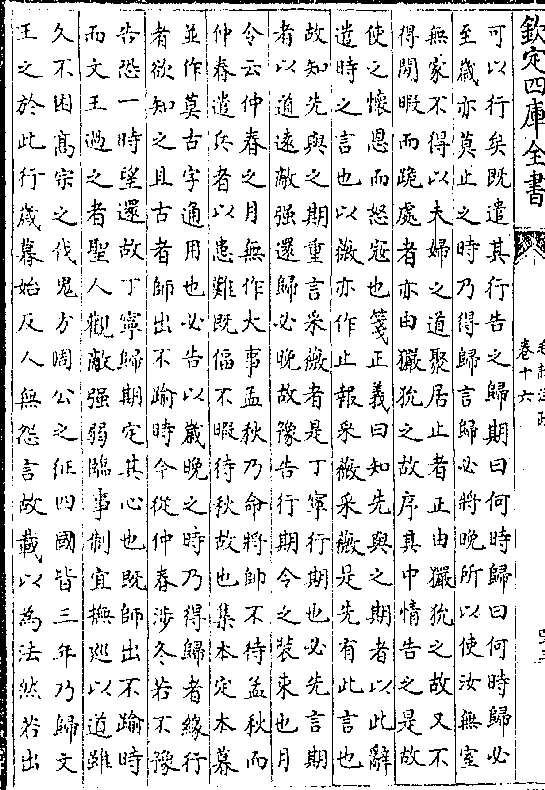 欽定四庫全書
卷十六
可以行矣既遣其行告之歸期曰何時歸曰何時歸必
至歲亦莫止之時乃得歸言歸必將晚所以使汝無室
無家不得以夫婦之道聚居止者正由玁狁之故又不
得閒暇而跪處者亦由玁狁之故序其中情告之是故
使之懷恩而怒寇也箋正義曰知先與之期者以此辭
遣時之言也以薇亦作止報采薇采薇是先有此言也
故知先與之期重言采薇者是丁寧行期也必先言期
者以道遠敵强還歸必晚故豫告行期令之裝束也月
令云仲春之月無作大事孟秋乃命將帥不待孟秋而
仲春遣兵者以患難既偪不暇待秋故也集本定本暮
並作莫古字通用也必告以歲晚之時乃得歸者緣行
者欲知之且古者師出不踰時今從仲春涉冬若不豫
告恐一時望還故丁寧歸期定其心也既師出不踰時
而文王過之者聖人觀敵强弱臨事制宜撫巡以道雖
久不困髙宗之伐鬼方周公之征四國皆三年乃歸文
王之於此行歲暮始反人無怨言故載以為法然若出